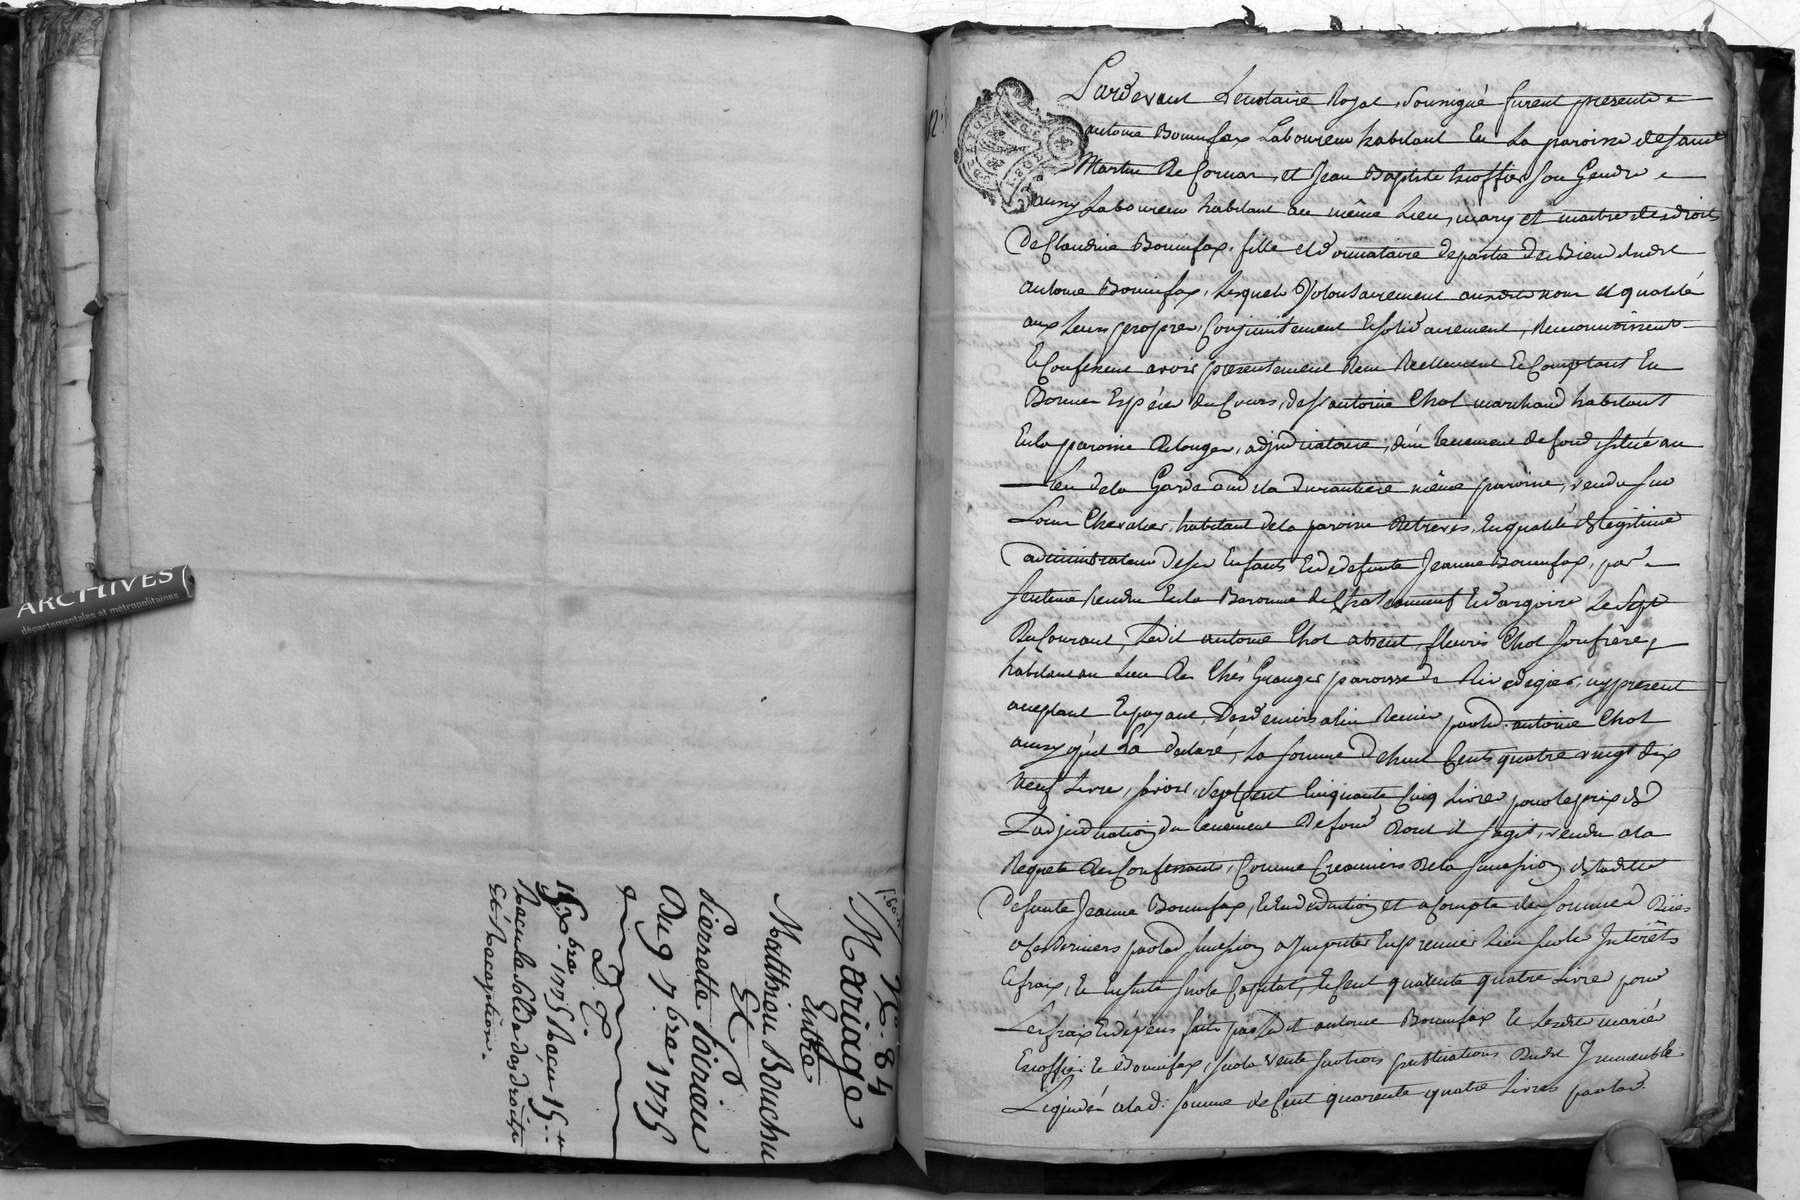 N.° 84
Mariage
Entre
Matthieu Bouchu
Et
Pierrette Poirieu
Du 9 7.bre 1775
D. C.
bre 1775 Racu 15
Racu le solde des droits
Et Raception.
ARCHIVES
départementales et métropolitaines
Pardevant Le notaire Royal, soussigné furent presents
antoine Bonnefax Laboureur habitant En La paroisse de saint
Martin De Cornas, et Jean Baptiste Escoffier son Gendre
aussy Laboureur habitant au même Lieu, mary et maitre des droits
De Claudine Bonnefax, fille et donnataire de partie des Biens dudit
antoine Bonnefax, Lesquels Volontairement ausdits nom et qualité
aux Leurs propres, Conjointement Et solidairement, Reconnoissent
Et Confessent avoir presentement Reçu Reellement Et Comptant En
Bonnes Espéces du Cours, de s.r antoine Chol marchand habitant
En la paroisse De Longes, adjudicataire, d'un tenement de fond situé au
Lieu de la Garde ou de la durantiere même paroisse, vendu sur
Louis Chevalier, habitant de la paroisse De treves, En qualité de Legitime
administrateur de ses Enfants Et de defunte Jeanne Bonnefax, par
sentence Rendue En la Baronnie de Chateauneuf Et dargoire Le sept
Du Courant, Ledit antoine Chol absent, fleuris Chol son frère,
habitant au Lieu De Chés Granger paroisse de Rivedegier, icy present
acceptant Et payant, Des deniers a lui Remis par led. antoine Chol
ainsy qu'il La declaré, La somme de huit Cents quatre vingt dix
Neuf Livres, savoir, sept Cent Cinquante Cinq Livres pour le prix de
L'adjudication du tenement De fond Dont il s'agit, vendu a la
Requete Des Confessants, Comme Creanciers De la succession de ladite
Defunte Jeanne Bonnefax, Et En deduction et a Compte des sommes Dües
a Ces derniers par lad. succession a Imputer En premier Lieu sur les Interêts
Et frais, Et Ensuite sur le Capital, Et Cent quarente quatre Livres pour
Les frais Et dépens faits par Ledit antoine Bonnefax Et Lesdits mariés
Escoffier Et Bonnefax, sur la vente sur trois publications Dudit Immeuble
Liquidés a lad. somme de Cent quarente quatre Livres par lad.